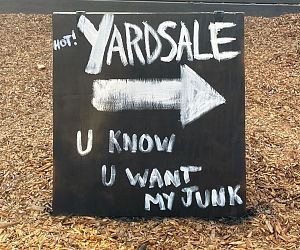 HOT! YARDSALE
U KNOW
U WANT
MY JUNK